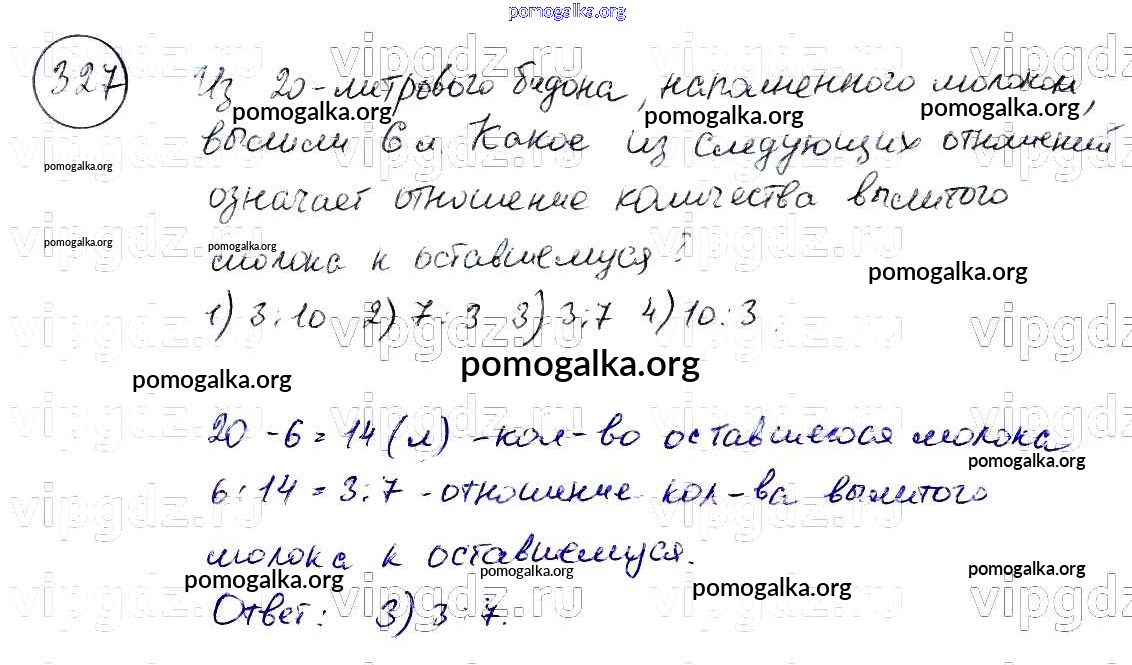 pomogalka.org
327 Из 20-литрового бидона, наполненного молоком,
вылили 6 л. Какое из следующих отношений
означает отношение количества вылитого
молока к оставшемуся?
1) 3:10 2) 7:3 3) 3:7 4) 10:3.
20 - 6 = 14 (л) - кол-во оставшегося молока
6:14 = 3:7 - отношение кол-ва вылитого
молока к оставшемуся.
Ответ: 3) 3:7.